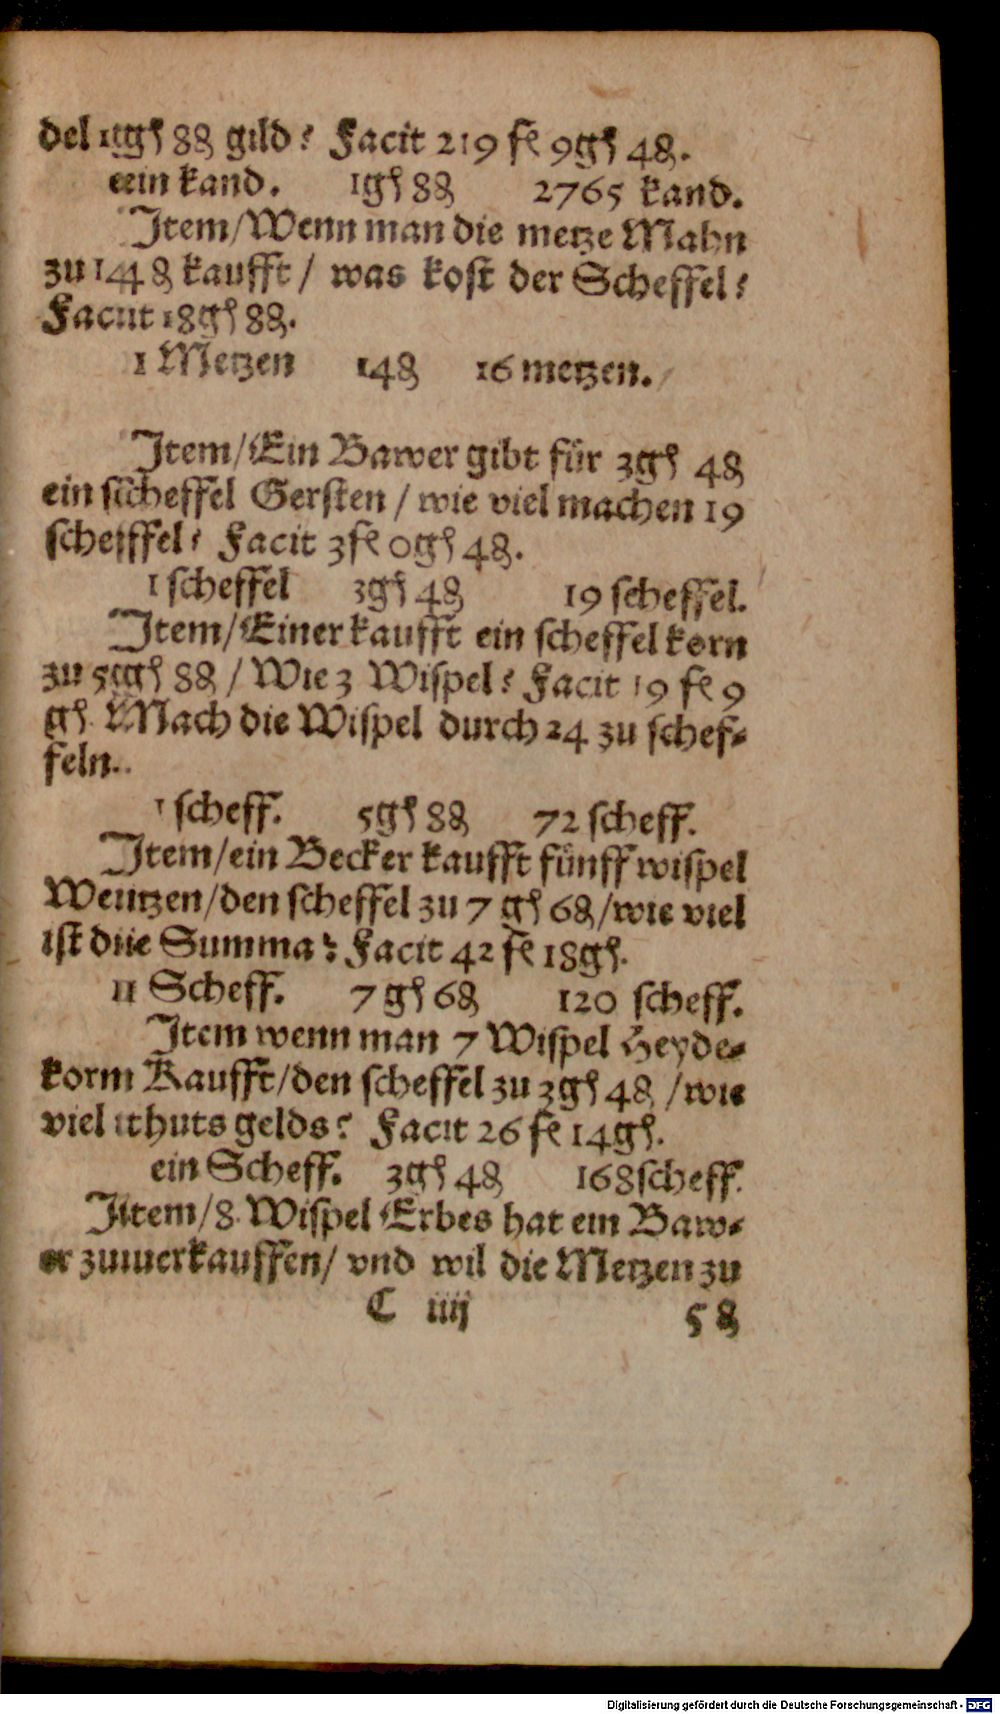 del 1gʃ 8₰ gild? Facit 219 fƨ 9gʃ 4₰.
ein kand. 1gʃ 8₰ 2765 kand.
Item/Wenn man die metze Mahn
zu 14₰ kaufft / was kost der Scheffel?
Facit 18gʃ 8₰.
1 Metzen 14₰ 16 metzen.
Item/Ein Bawer gibt für 3gʃ 4₰
ein scheffel Gersten / wie viel machen 19
scheffel? Facit 3fƨ 0gʃ 4₰.
1 scheffel 3gʃ 4₰ 19 scheffel.
Item/Einer kaufft ein scheffel korn
zu 5gʃ 8₰ / Wie 3 Wispel? Facit 19 fƨ 9
gʃ. Mach die Wispel durch 24 zu schef-
feln.
1 scheff. 5gʃ 8₰ 72 scheff.
Item/ein Becker kaufft fünff wispel
Weitzen/den scheffel zu 7 gʃ 6₰/wie viel
ist die Summa? Facit 42 fƨ 18gʃ.
1 Scheff. 7 gʃ 6₰ 120 scheff.
Item wenn man 7 Wispel Heyde-
korn Kaufft/den scheffel zu 3gʃ 4₰ /wie
viel thuts gelds? Facit 26 fƨ 14gʃ.
ein Scheff. 3gʃ 4₰ 168scheff.
Item/8. Wispel Erbes hat ein Baw-
er zuuerkauffen/ vnd wil die Metzen zu
C iiij 5₰
Digitalisierung gefördert durch die Deutsche Forschungsgemeinschaft - DFG